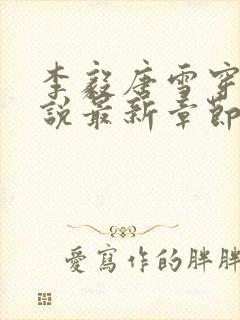 李毅唐雪穿
說最新章節
愛寫作的胖胖